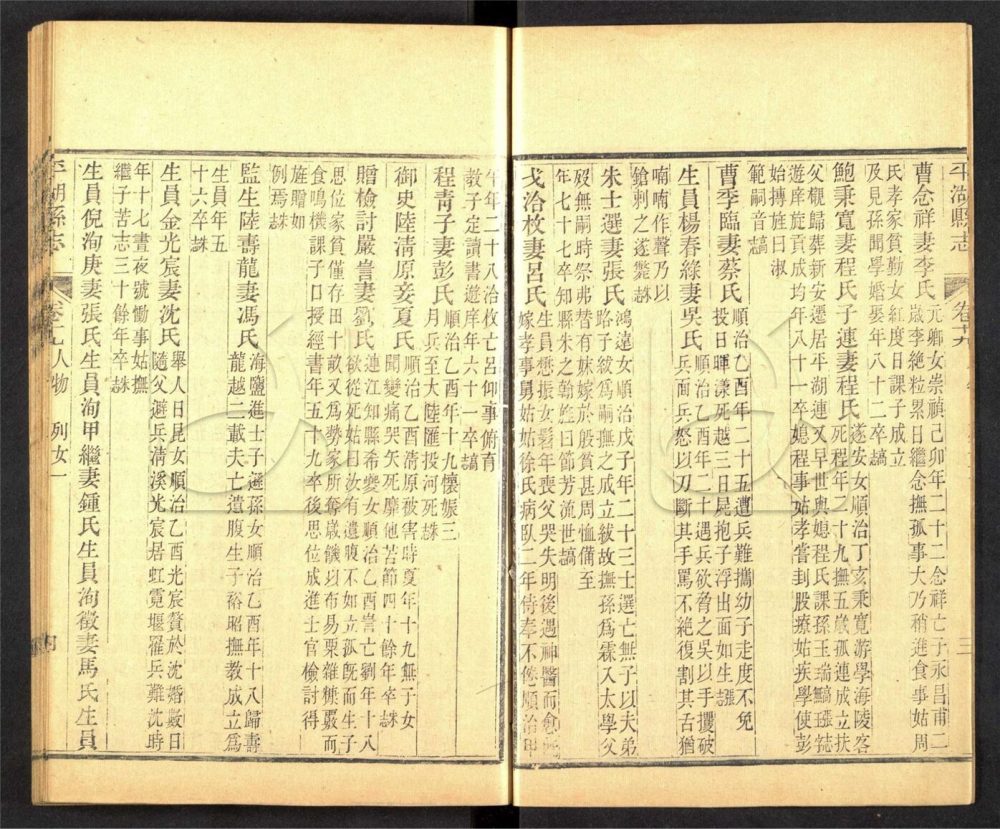 平湖縣志
卷十九
三
曹念祥妻李氏 元卿女崇禎己卯年二十二念祥亡子永昌甫二
歲李絶粒累日繼念撫孤事大乃稍進食事姑周
氏孝家貧勤女紅度日課子成立
及見孫聞學婚娶年八十二卒
鮑秉寬妻程氏子連妻程氏 遂安女順治丁亥秉寬游學海陵客
死程年二十九撫五歲孤連成立扶
父櫬歸葬新安遷居平湖連又早世與媳程氏課孫玉
遊庠旌貢成均年八十一卒媳程事姑孝嘗刲股療姑疾學使彭
始摶旌曰淑
範嗣音
曹季臨妻蔡氏 順治乙酉年二十五遭兵難攜幼子走度不免
投日暉漾死越三日屍抱子浮出面如生
生員楊春綠妻吳氏 順治乙酉年二十遇兵欲脅之吳以手攫破
兵面兵怒以刀斷其手罵不絶復割其舌猶
喃喃作聲乃以
鎗刺之遂斃
朱士選妻張氏 鴻遠女順治戊子年二十三士選亡無子以夫弟
路子紱為嗣撫之成立紱故撫孫為霖入太學父
歿無嗣時祭弗替有妹嫁於殷貧甚周恤備至
年七十七卒知縣朱之翰旌曰節芳流世
戈洽枚妻呂氏 生員懋振女髫年喪父哭失明後遇神醫而愈
嫁孝事舅姑姑徐氏病臥二年侍奉不倦順治甲
午年二十八洽枚亡呂仰事俯育
教子定讀書遊庠年六十一卒
程靑子妻彭氏 順治乙酉年十九懷娠三
月兵至大陸匯投河死
御史陸清原妾夏氏 順治乙酉清原被害時夏年十九無子女
聞變痛哭矢死靡他苦節四十餘年卒
贈檢討嚴訔妻劉氏 連江知縣希夔女順治乙酉訔亡劉年十八
欲從死姑曰汝有遺腹不如立孤旣而生子
思位家貧僅存田十畝又為勢家所奪歲饑以布易粟雜糠覈而
食鳴機課子口授經書年五十九卒後思位成進士官檢討得
旌贈如
例焉
監生陸壽龍妻馮氏 海鹽進士子遜孫女順治乙酉年十八歸壽
龍越二載夫亡遺腹生子裕昭撫教成立為
生員年五
十六卒
生員金光宸妻沈氏 舉人日昆女順治乙酉光宸贅於沈婚數日
隨父避兵清溪光宸居虹霓堰罹兵難沈時
年十七晝夜號慟事姑撫
繼子苦志三十餘年卒
生員倪洵庚妻張氏生員洵甲繼妻鍾氏生員洵徵妻馬氏生員
平湖縣志
卷十九 人物 列女一
四